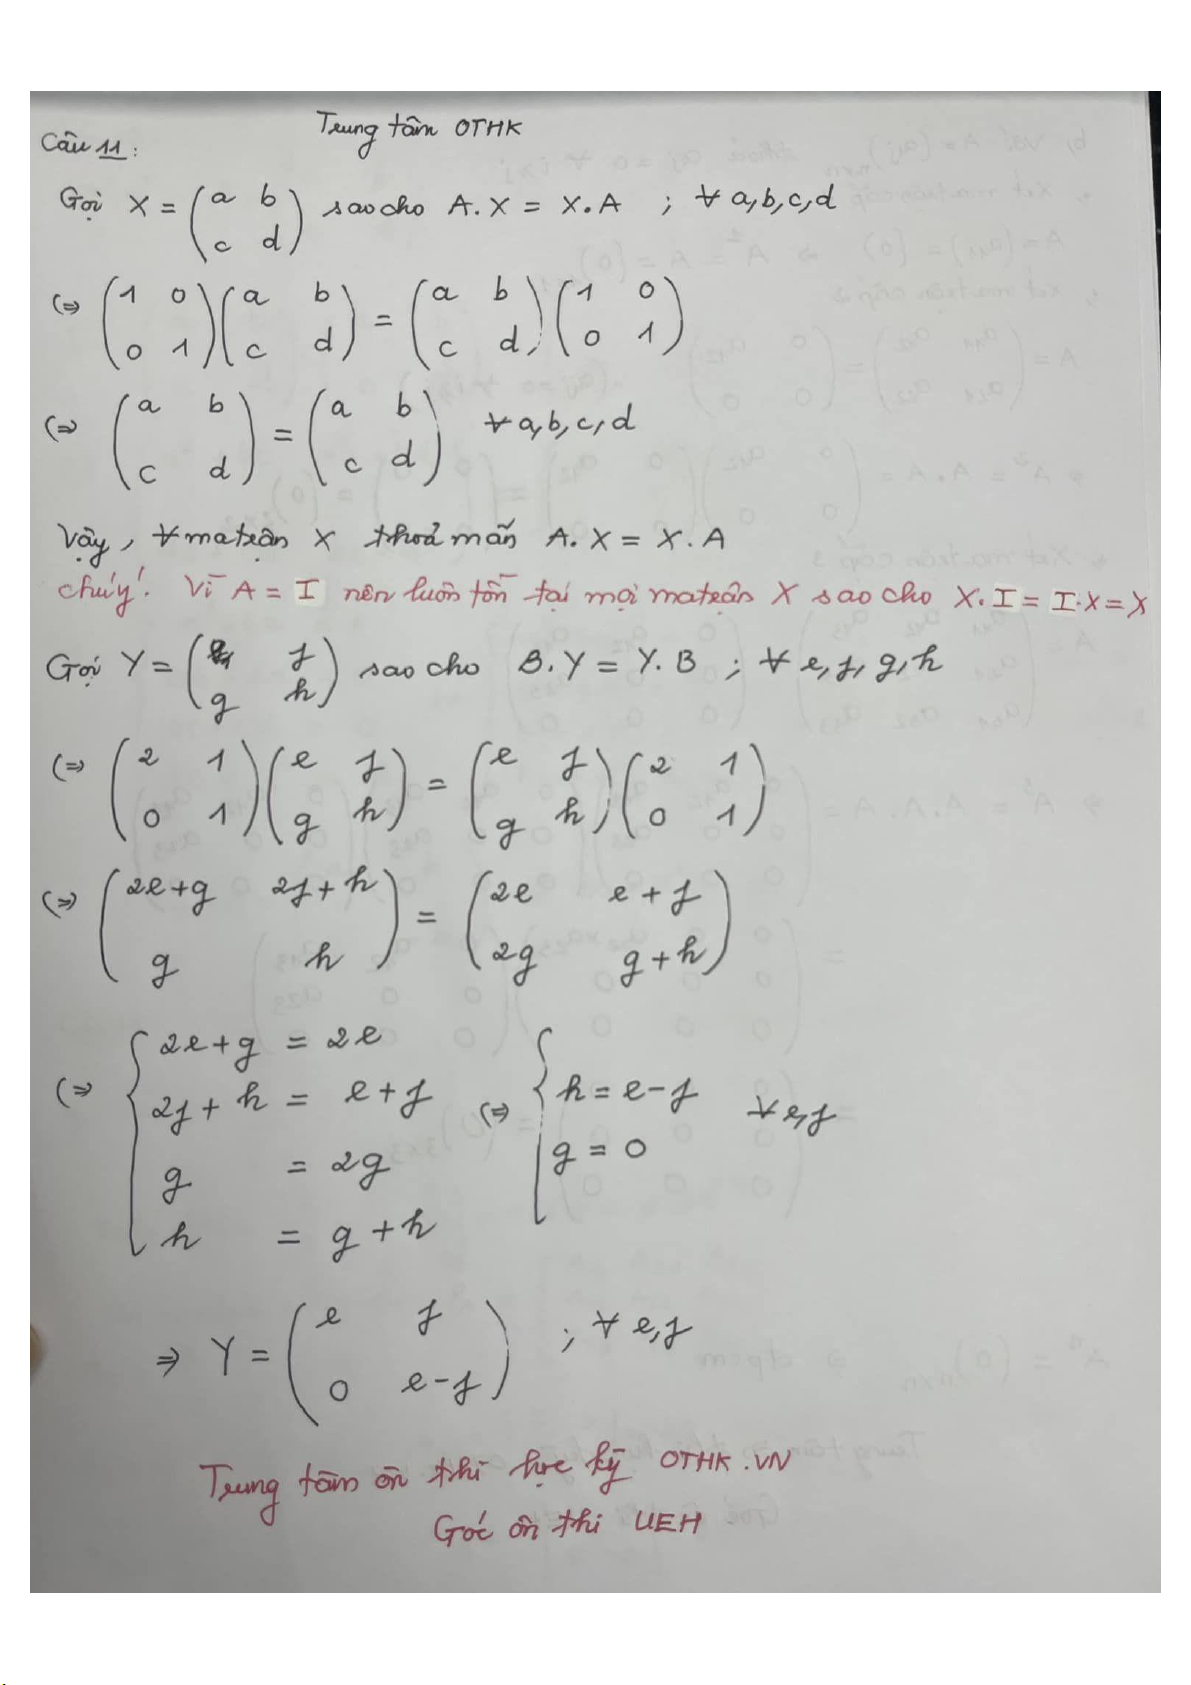 Trung tâm OTHK
Câu 11:
Gọi X = (a b; c d) sao cho A.X = X.A ; ∀ a,b,c,d
(=> (1 0; 0 1)(a b; c d) = (a b; c d)(1 0; 0 1)
(=> (a b; c d) = (a b; c d) ∀ a,b,c,d
Vậy, ∀ ma trận X thoả mãn A.X = X.A
chú ý! Vì A = I nên luôn tồn tại mọi ma trận X sao cho X.I = I.X = X
Gọi Y = (e f; g h) sao cho B.Y = Y.B ; ∀ e,f,g,h
(=> (2 1; 0 1)(e f; g h) = (e f; g h)(2 1; 0 1)
(=> (2e+g 2f+h; g h) = (2e e+f; 2g g+h)
(=> { 2e+g = 2e
2f+h = e+f (=> { h = e-f ∀ e,f
g = 2g g = 0
h = g+h
=> Y = (e f; 0 e-f) ; ∀ e,f
Trung tâm ôn thi học kỳ OTHK.VN
Góc ôn thi UEH